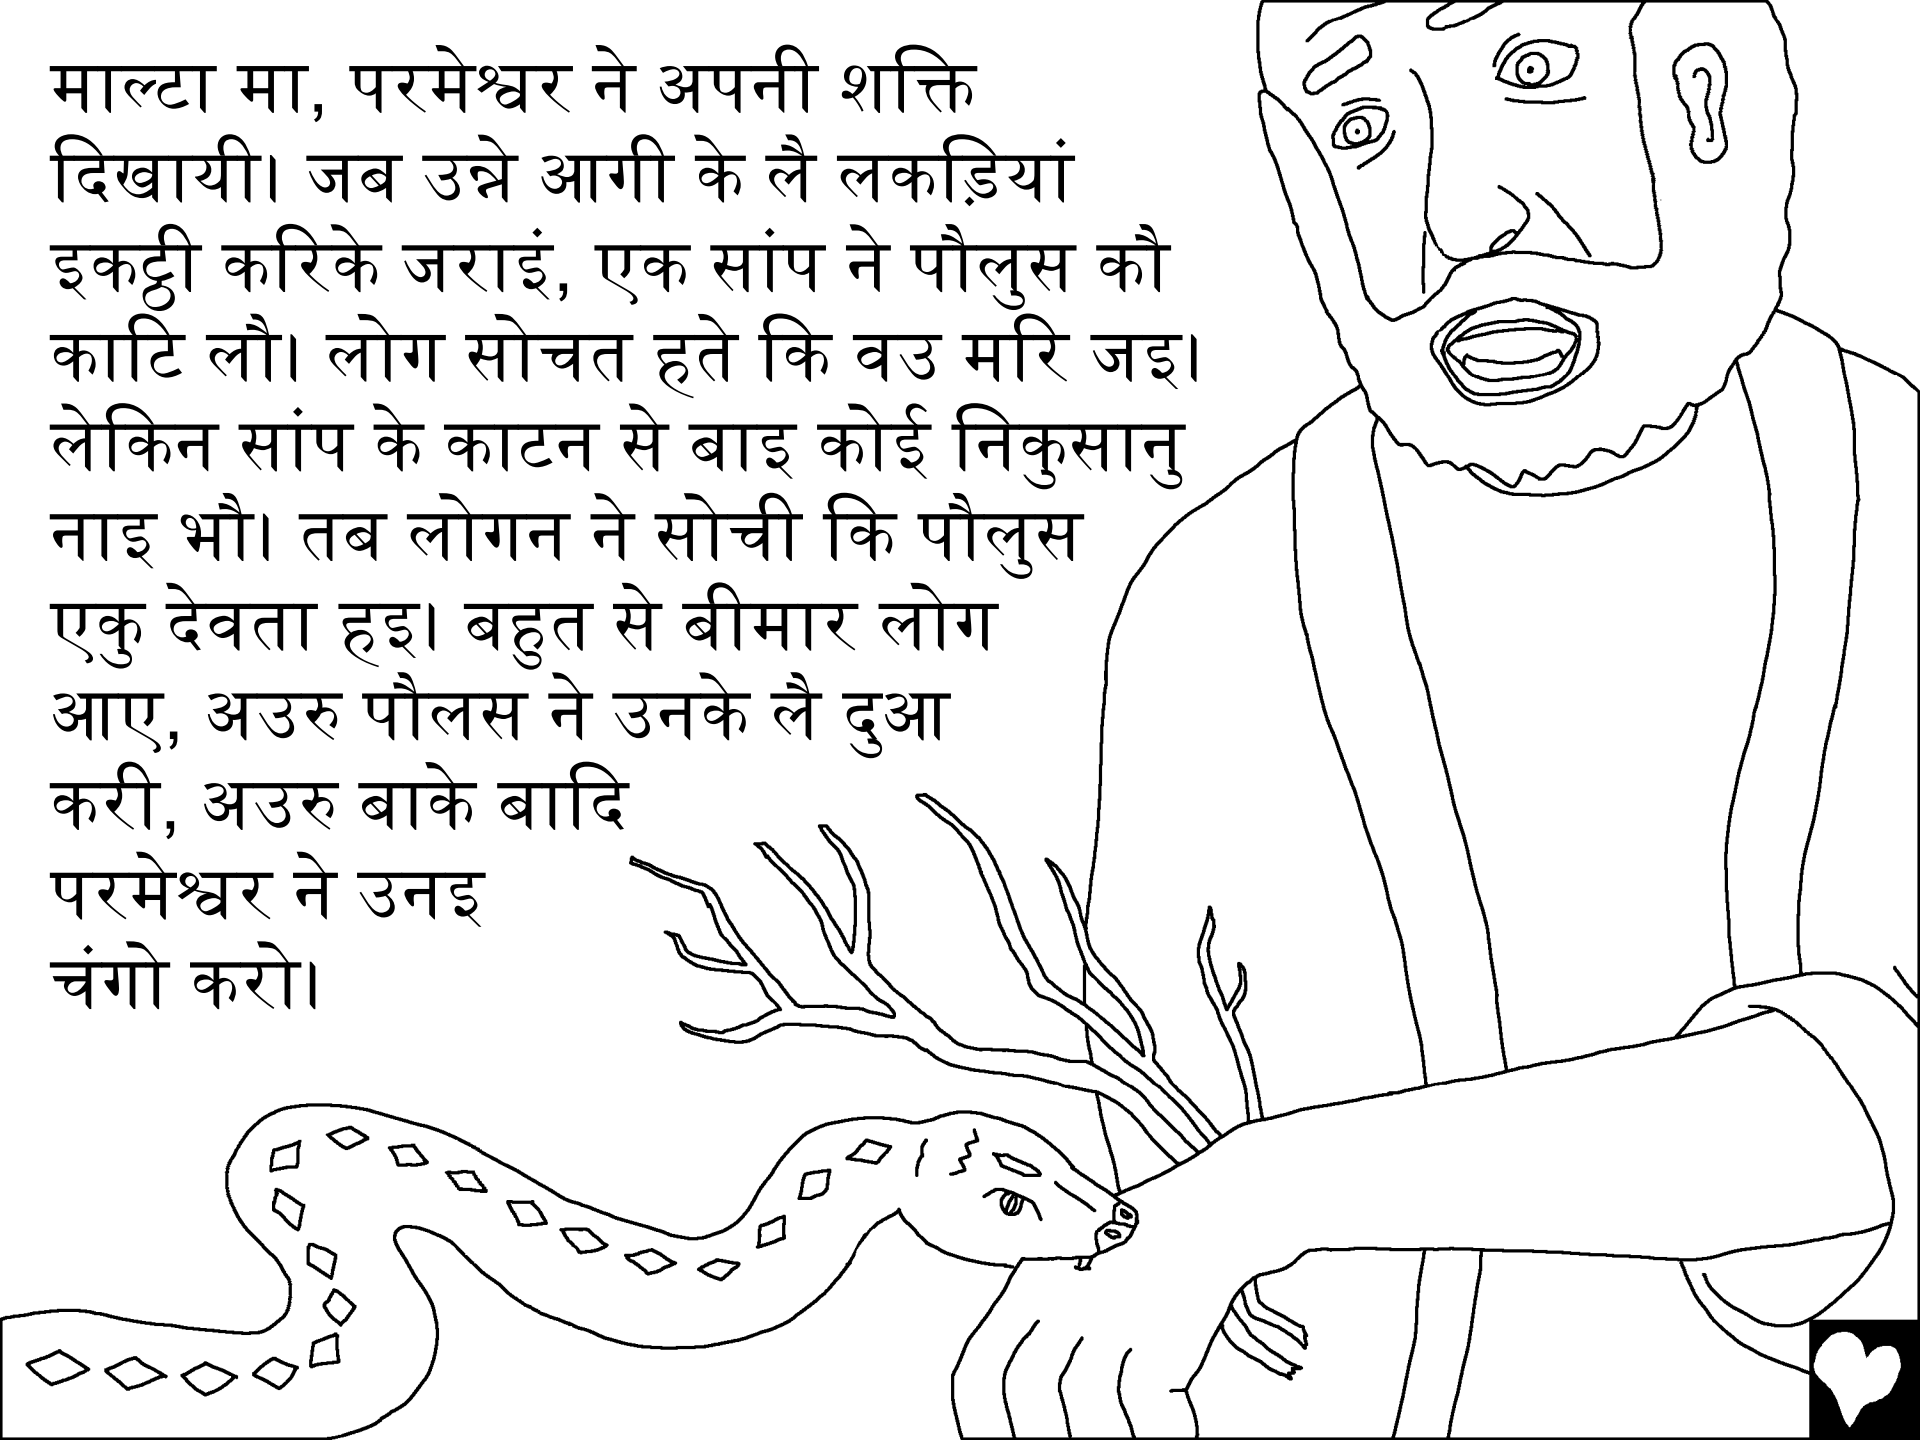 माल्टा मा, परमेश्वर ने अपनी शक्ति
दिखायी। जब उन्ने आगी के लै लकड़ियां
इकट्ठी करिके जराइं, एक सांप ने पौलुस कौ
काटि लौ। लोग सोचत हते कि वउ मरि जइ।
लेकिन सांप के काटन से बाइ कोई निकुसानु
नाइ भौ। तब लोगन ने सोची कि पौलुस
एकु देवता हइ। बहुत से बीमार लोग
आए, अउरु पौलस ने उनके लै दुआ
करी, अउरु बाके बादि
परमेश्वर ने उनइ
चंगो करो।